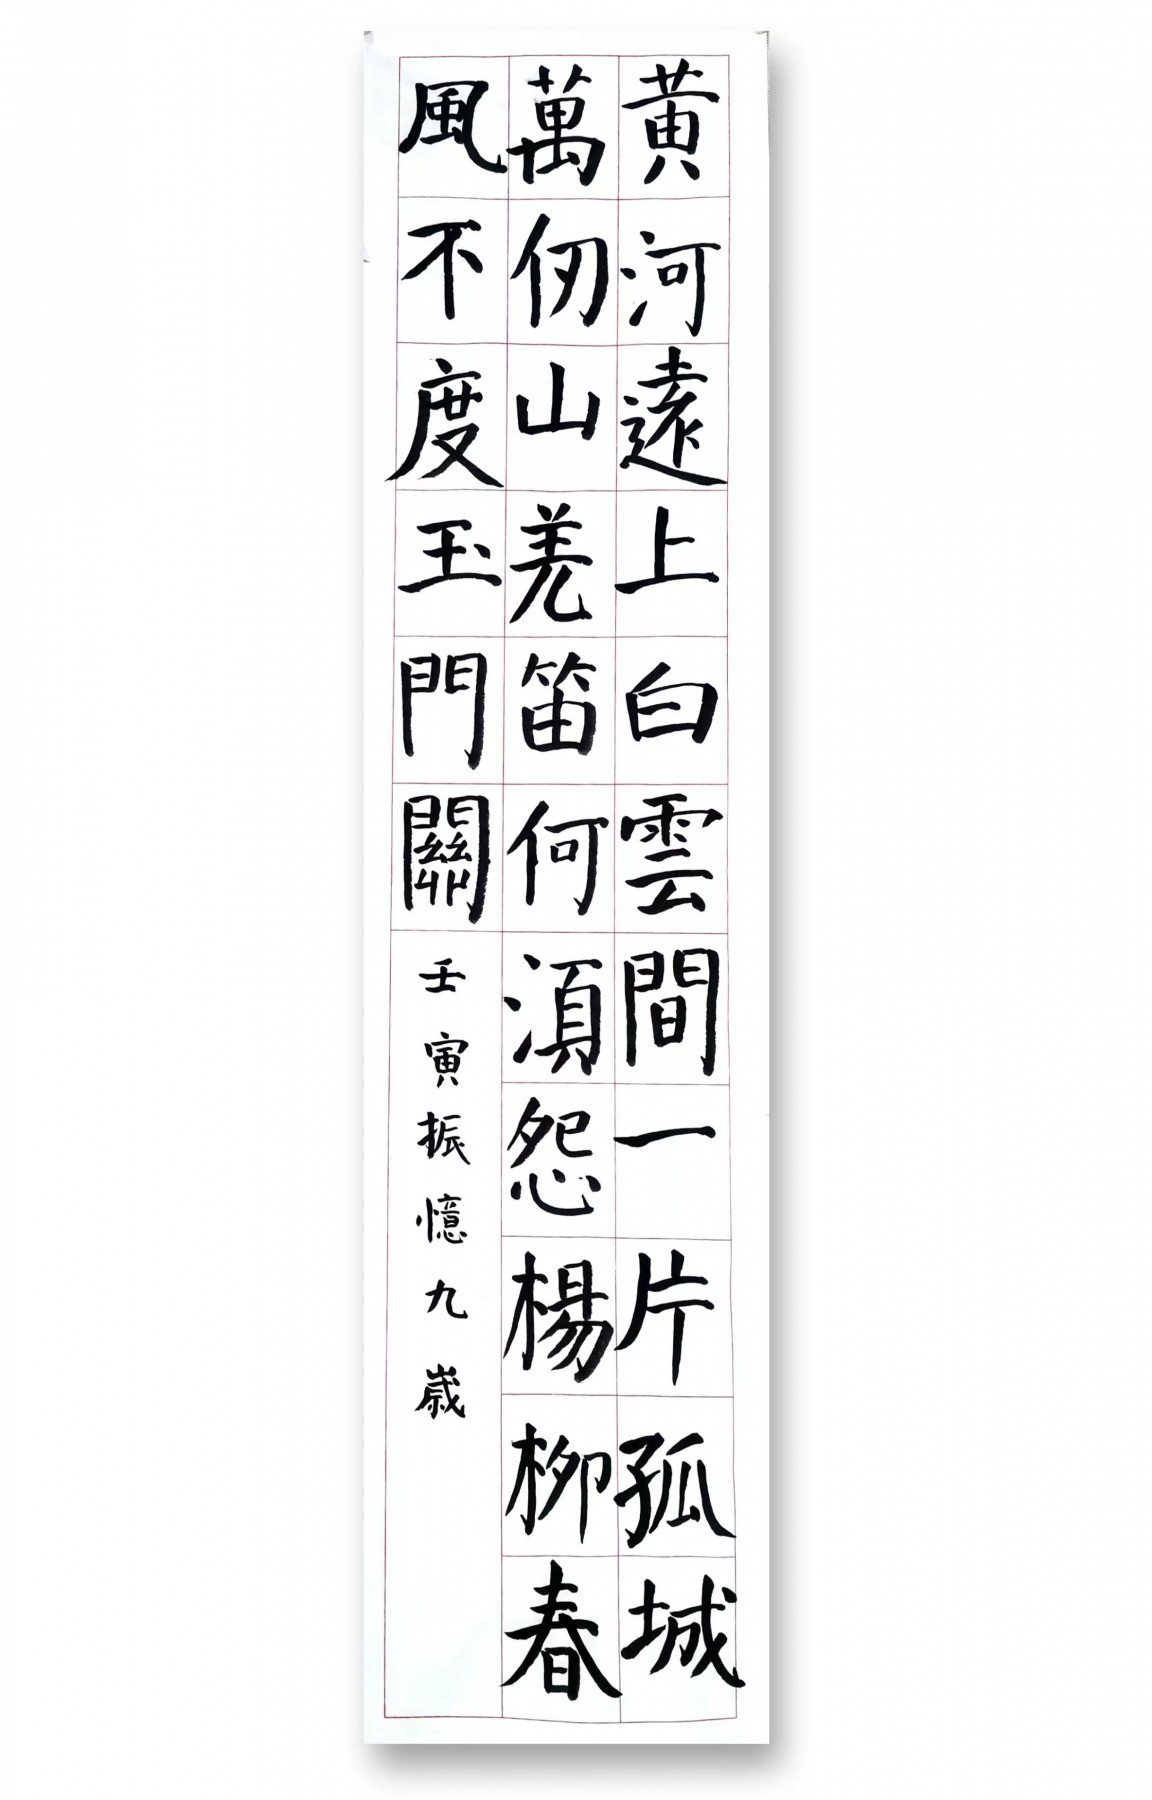 黄河遠上白雲間一片孤城
萬仞山羌笛何湏怨楊柳春
風不度玉門關
壬寅振憶九歲